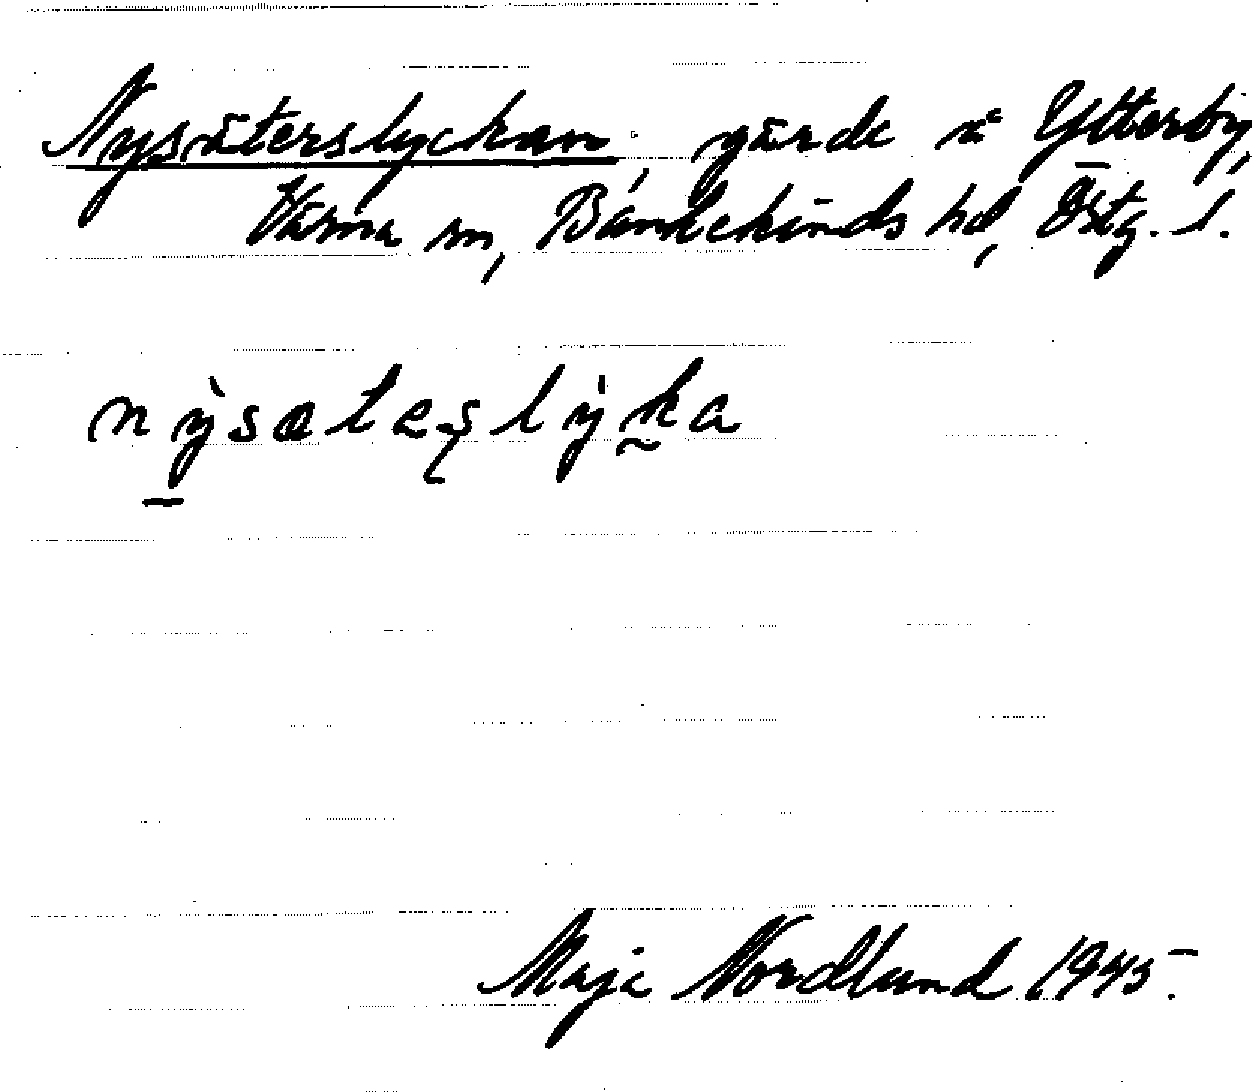 Nysäterslyckan, gärde å Ytterby,
Värna sn, Bankekinds hd, Östg. l.
nỳsæteşlẏka
Maja Nordlund 1945.